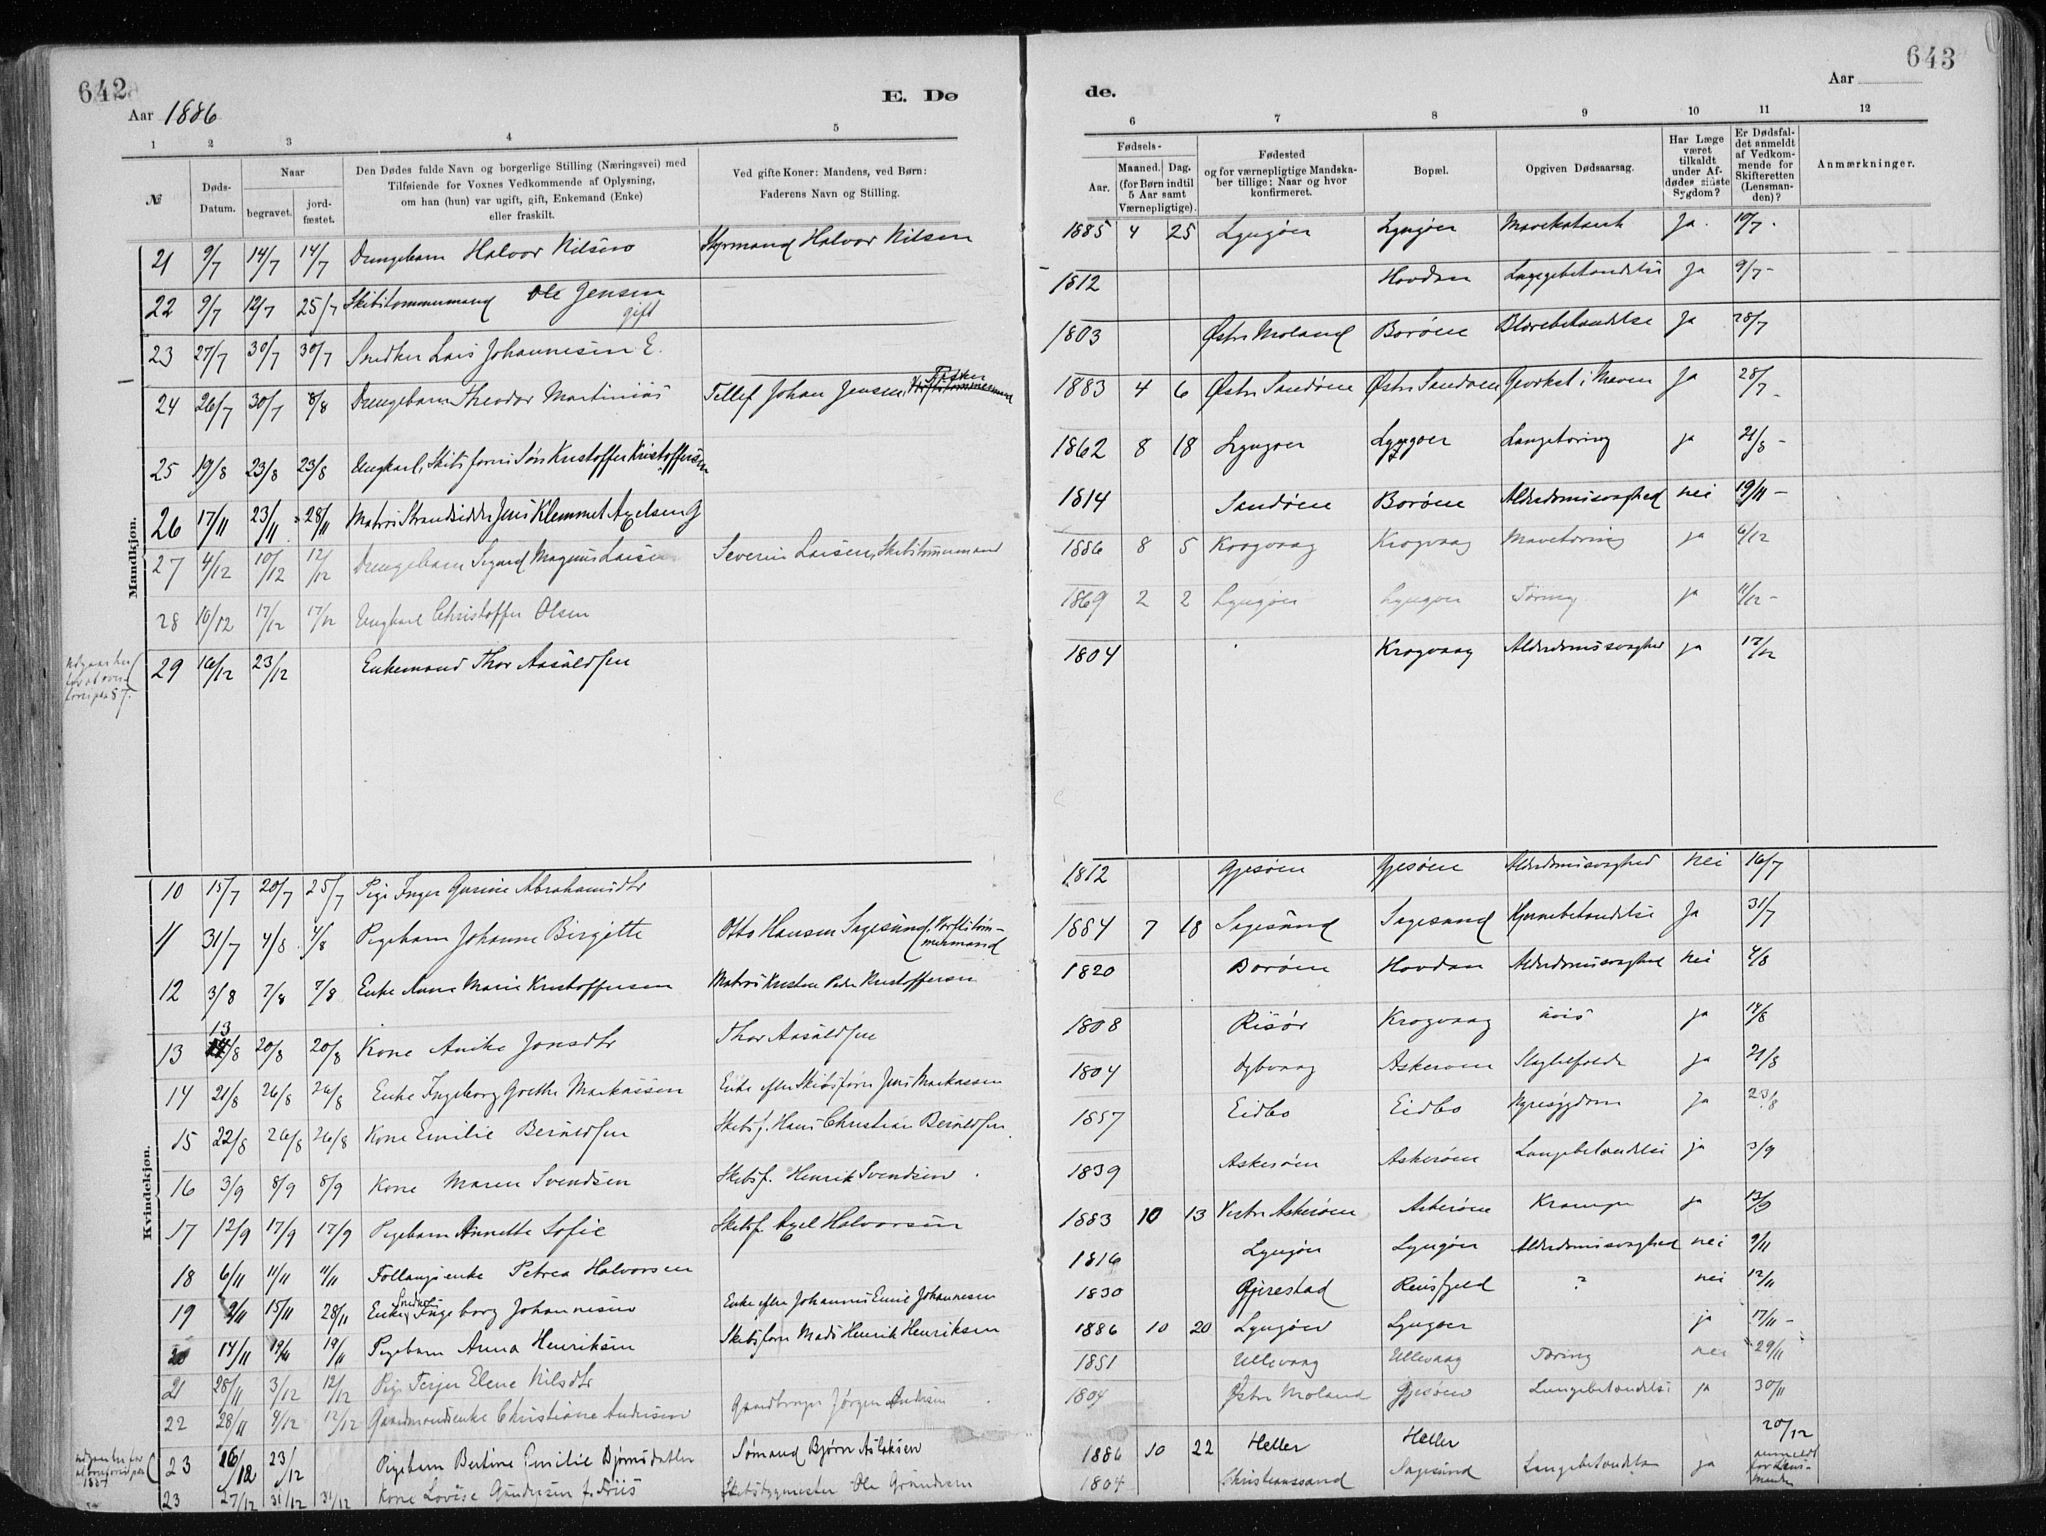 642
Aar 1886
E. Dø
1 2 3 4 5
№
Døds-Datum.
Naar
begravet.
jord-fæstet.
Den Dødes fulde Navn og borgerlige Stilling (Næringsvei) med
Tilføiende for Voxnes Vedkommende af Oplysning,
om han (hun) var ugift, gift, Enkemand (Enke)
eller fraskilt.
Ved gifte Koner: Mandens, ved Børn:
Faderens Navn og Stilling.
Mandkjøn.
21 9/7 14/7 14/7 Drengebarn Halvor Nilsen Styrmand Halvor Nilsen
22 9/7 12/7 25/7 Skibstømmermand Ole Jensen
gift
23 27/7 30/7 30/7 Snedker Lars Johannesen E.
24 26/7 30/7 8/8 Drengebarn Theodor Martinius Tellef Johan Jensen, Fisker
25 19/8 23/8 23/8 Ungkarl, Skibsfører Søn Kristoffer Kristoffersen
26 17/11 23/11 28/11 Matros Strandsidder Jens Klemmet Axelsen G
27 4/12 10/12 12/12 Drengebarn Sigurd Magnus Larsen Severin Larsen, Skibstømmermand
28 10/12 17/12 17/12 Ungkarl Christoffer Olsen
29 16/12 23/12 Enkemand Thor Aasuldsen
Kvindekjøn.
10 15/7 20/7 25/7 Pige Inger Gurine Abrahamsdtr
11 31/7 4/8 4/8 Pigebarn Johanne Birgitte Otto Hansen Sagesund, Verftstøm-
mermand
12 3/8 7/8 7/8 Enke Anne Marie Kristoffersen Matros Kristen Peder Kristoffersen
13 13/8 20/8 20/8 Kone Anike Jonsdtr Thor Aasuldsen
14 21/8 26/8 26/8 Enke Ingeborg Grethe Markussen Enke efter Skibsfører Jens Markussen
15 22/8 26/8 26/8 Kone Emilie Beruldsen Skibsf. Hans Christian Beruldsen
16 3/9 8/9 8/9 Kone Maren Svendsen Skibsf. Henrik Svendsen
17 12/9 17/9 17/9 Pigebarn Annette Sofie Skibsf. Axel Halvorsen
18 6/11 11/11 11/11 Petrea Halvorsen
19 9/11 15/11 28/11 Enke Ingeborg Johannesen Enke efter Johannes Johannesen
20 14/11 19/11 19/11 Pigebarn Anna Henriksen Skibsfører Mads Henrik Henriksen
21 28/11 3/12 12/12 Pige Terjer Elene Nilsdtr
22 28/11 4/12 12/12 Gaardmandsenke Christiane Andersen Gaardbruger Jørgen Andersen
23 16/12 23/12 Pigebarn Bertine Emilie Bjørnsdatter Sømand Bjørn Aslaksen
23 27/12 31/12 31/12 Kone Lovise Gundersen f. Friis Skibsbygmester Ole Gundersen
643
de.
Aar
6 7 8 9 10 11 12
Fødsels-
Aar.
Maaned. Dag.
(for Børn indtil
5 Aar samt
Værnepligtige).
Fødested
og for værnepligtige Mandska-
ber tillige: Naar og hvor
konfirmeret.
Bopæl.
Opgiven Dødsaarsag.
Har Læge
været
tilkaldt
under Af-
dødes sidste
Sygdom?
Er Dødsfal-
det anmeldt
af Vedkom-
mende for
Skifteretten
(Lensman-
den)?
Anmærkninger.
1885 4 25 Lyngøer Lyngøer Mavekatarrh Ja. 10/7.
1812 Hovdan Lungebetændelse Ja 9/7-
1803 Østre Moland Borøen Blærebetændelse Ja 28/7
1883 4 6 Østre Sandøen Østre Sandøen i Maven Ja 28/7
1862 8 18 Lyngøer Lyngøer Lungetæring ja 21/8-
1814 Sandøen Borøen Alderdomssvaghed nei 19/11-
1886 8 5 Krogvaag Krogvaag Mavetæring ja 6/12
1869 2 2 Lyngøer Lyngøer Tæring ja 11/12-
1804 Krogvaag Alderdomssvaghed ja 17/12
1812 Gjesøen Gjesøen Alderdomssvaghed nei 16/7
1884 7 18 Sagesund Sagesund Hjernebetændelse Ja 31/7
1820 Borøen Hovdan Alderdomssvaghed nei 4/8
1808 Risør Krogvaag ja 14/8
1804 Dybvaag Askerøen Slagtilfælde ja 21/8
1857 Eidbo Eidbo Nyresygdom Ja 23/8
1839 Askerøen Askerøen Lungebetændelse ja 3/9
1883 10 13 Vestre Askerøen Askerøen Krampe ja 13/9
1816 Lyngøer Lyngøer Alderdomssvaghed nei 9/11
1830 Gjerestad Reiersfjeld ? nei 12/11
1886 10 20 Lyngøer Lyngøer ja 17/11-
1851 Ullevaag Ullevaag Tæring nei 29/11
1804 Østre Moland Gjesøen Lungebetændelse ja 30/11
1886 10 22 Heller Heller 20/12
1804 Christianssand Sagesund Lungebetændelse ja anmeldt
for Lens-
mand